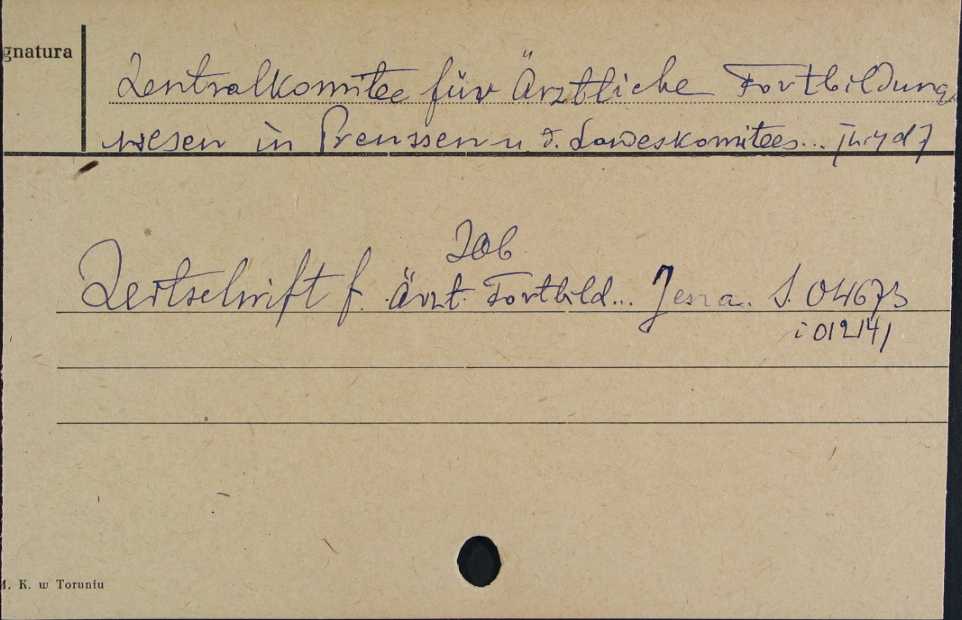 gnatura
Zentralkomitee für Ärztliche Fortbildung
wesen in Preussen u. d. Landeskomitees...
Zob
Zeitschrift f. Ärzt. Fortbild... Jena. S. 04673
i 012141
M. K. w Toruniu